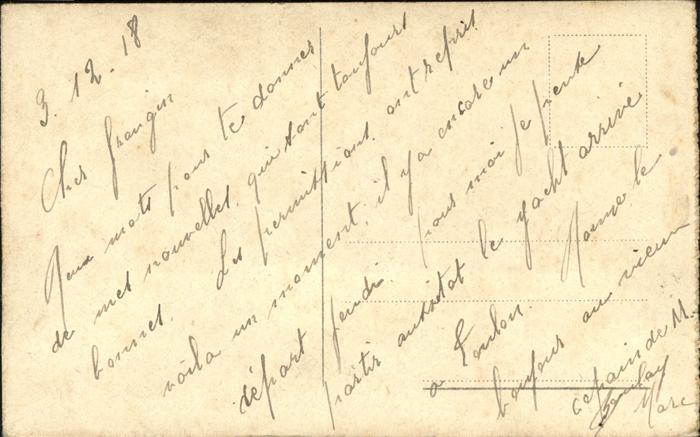 3.12.18
Cher frangin
Deux mots pour te donner
de mes nouvelles, qui sont toujours
bonnes. Les permissions ont repris
voila un moment, il y a encore un
départ jeudi. pour moi je pense
partir aussitot le yacht arrivé
a Toulon. Donne le
bonjour au vieux
copain de M.
Marc